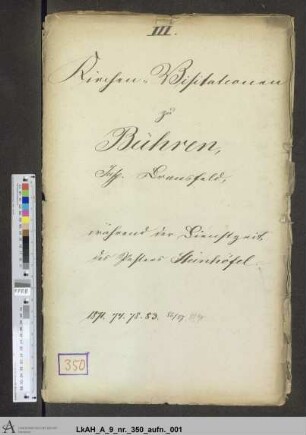 III.
Kirchen-Visitationen
zu
Bühren,
Insp. Dransfeld,
während der Dienstzeit
des Pastors
1871. 74. 78. 83.
350
LkAH_A_9_nr._350_aufn._001